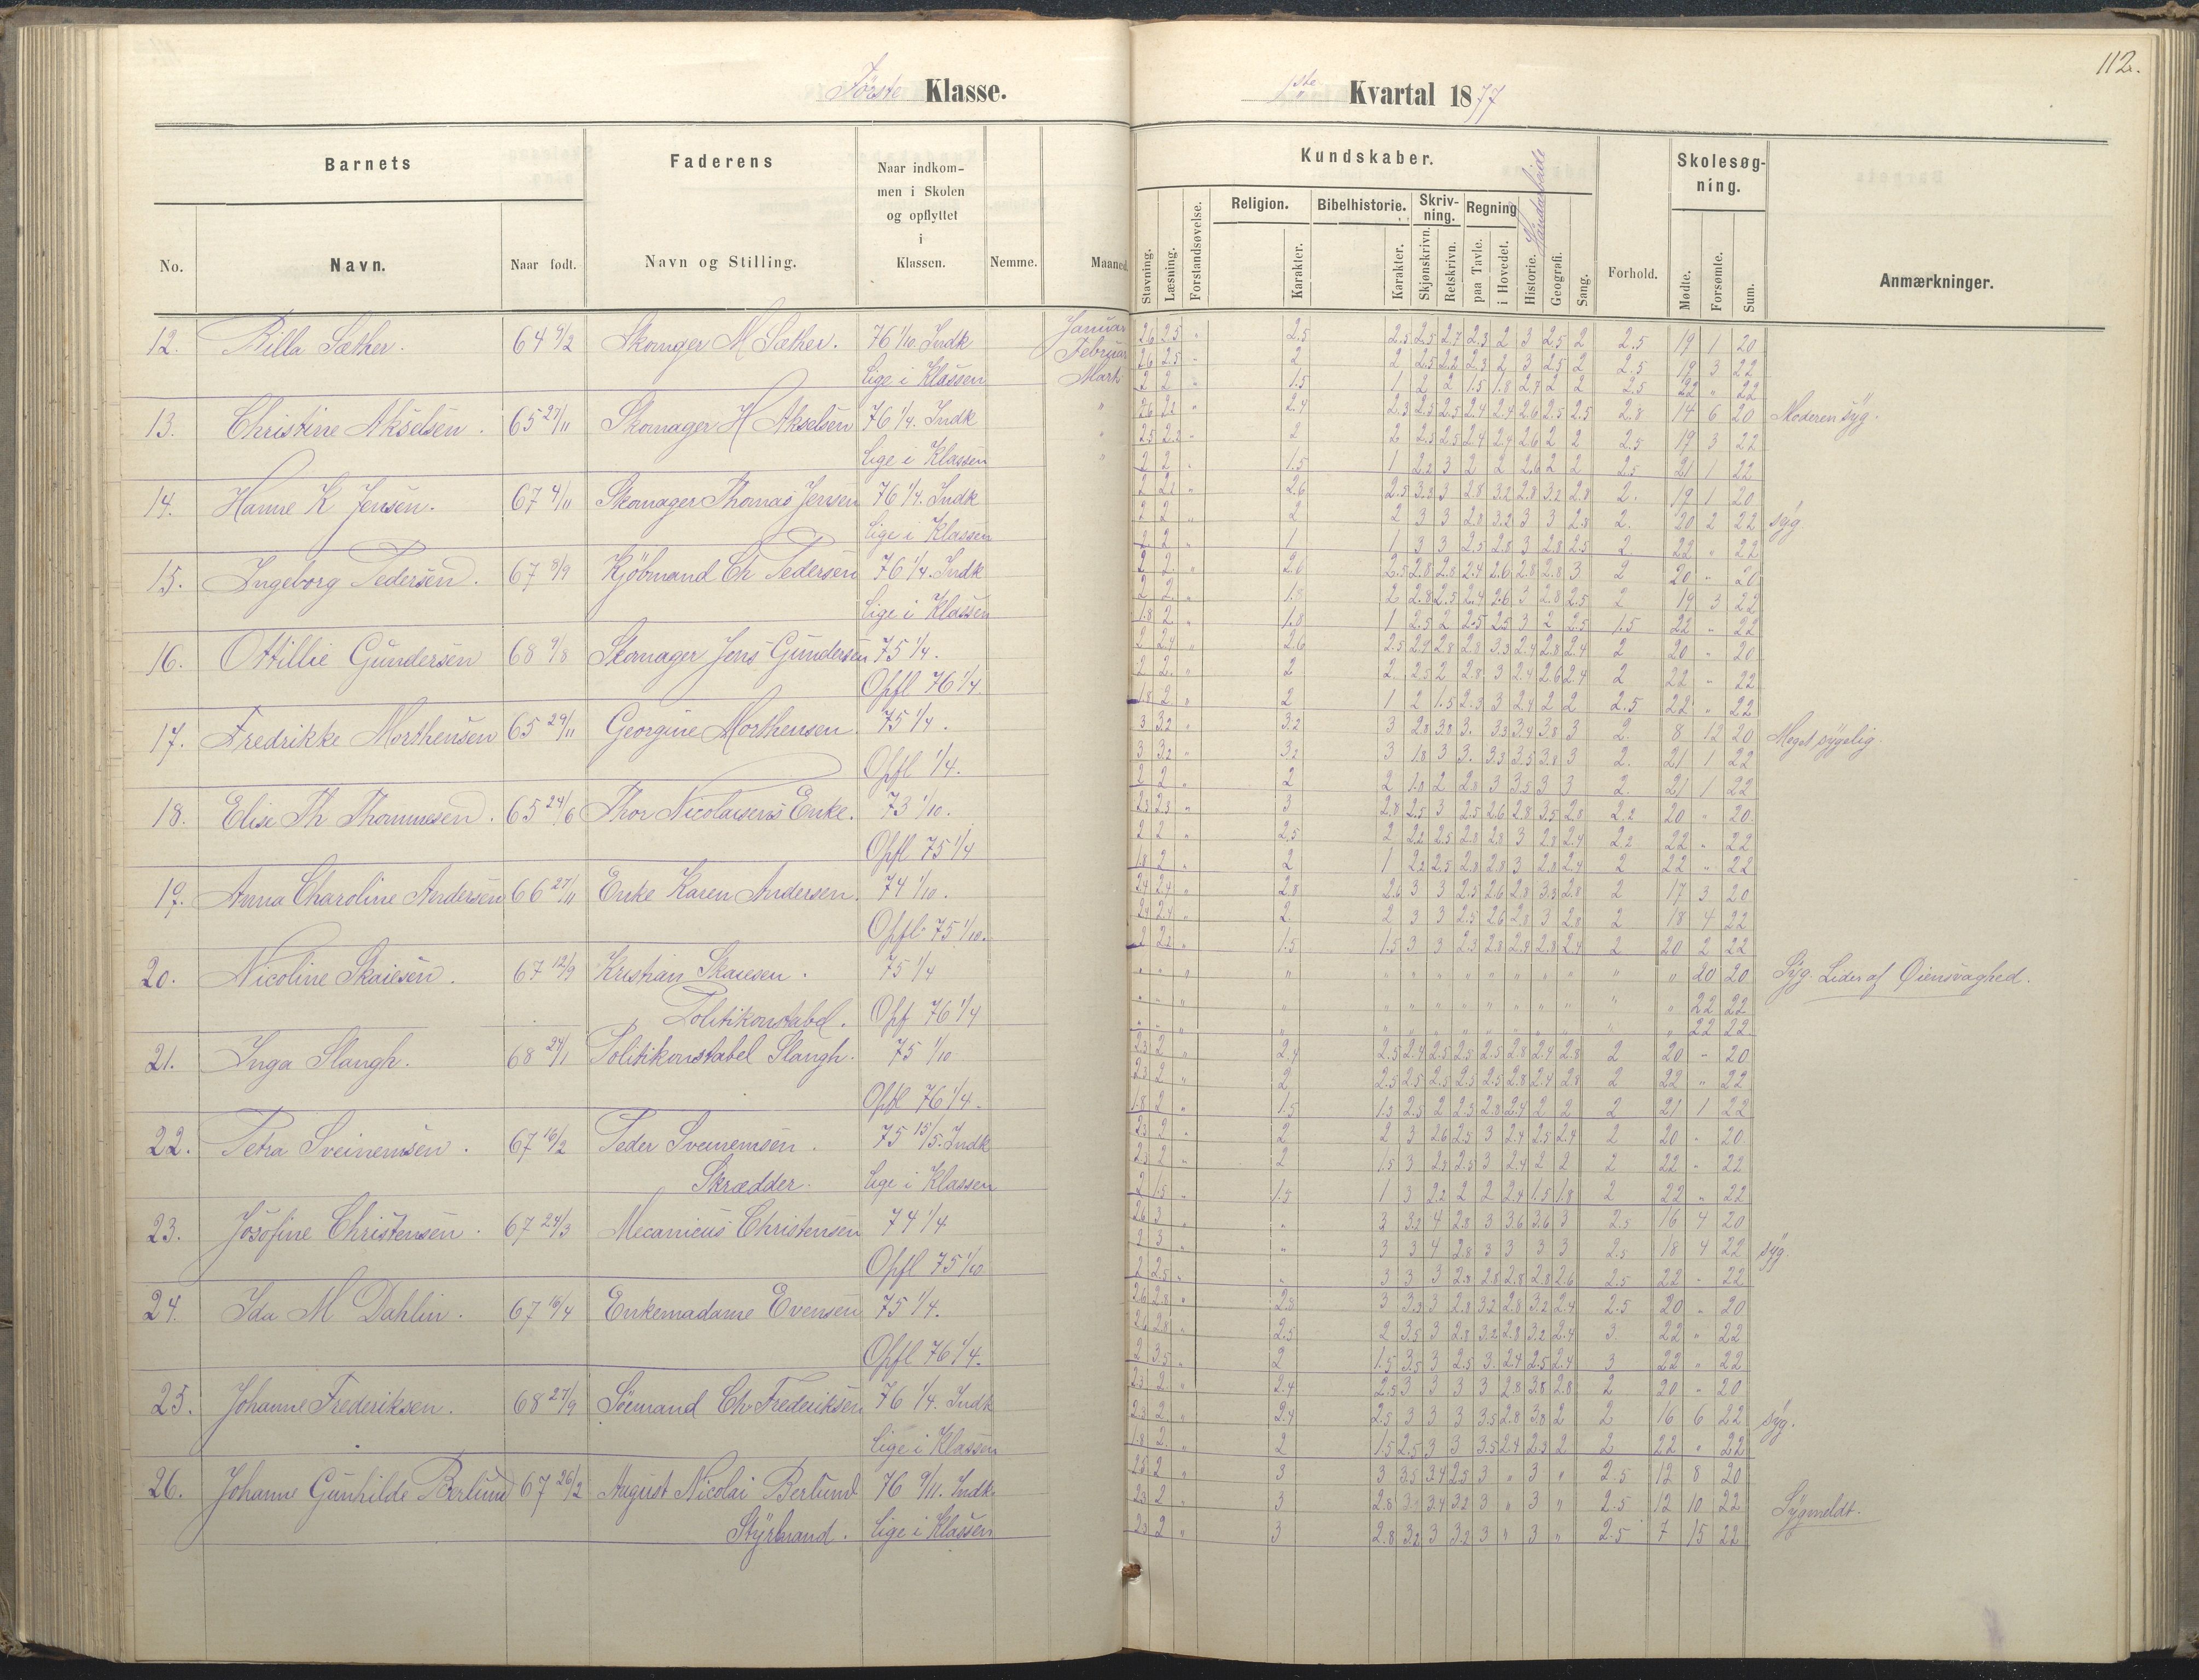 112.
Første Klasse.
1ste Kvartal 1877
Barnets
Faderens
Naar indkommen i Skolen og opflyttet i Klassen.
Nemme.
Maaned.
No.
Navn.
Naar født.
Navn og Stilling.
Kundskaber.
Stavning.
Læsning.
Forstandsøvelse.
Religion.
Karakter.
Bibelhistorie.
Karakter.
Skrivning.
Skjønskrivn.
Retskrivn.
Regning
paa Tavle.
i Hovedet.
Historie.
Haandarbeide
Geografi.
Sang.
Forhold.
Skolesøgning.
Mødte.
Forsømte.
Sum.
Anmærkninger.
12. Billa Sæther. 64 9/2 Skomager M Sæther. 76 1/10 Indk Januar 2.6 2.5 " 2.5 2.5 2.5 2.7 2.3 2 3 2.5 2 2.5 19 1 20
Februar 2.6 2.5 " 2 2 2.5 2.2 2.3 2 3 2.5 2 2.5 19 3 22
lige i Klassen Marts 2 2 " 1.5 1 2 2 1.5 1.8 2.7 2 2 2.5 22 " 22
13. Christine Akselsen. 65 27/11 Skomager H Akselsen 76 1/4. Indk " 2.6 2.2 " 2.4 2.3 2.5 2.5 2.4 2.4 2.6 2.5 2.5 2.8 14 6 20 Moderen syg.
" 2.5 2.2 " 2 2 2.3 2.5 2.4 2.4 2.6 2 2 2.5 19 3 22
lige i Klassen " 2 2 " 1.5 1 2.2 3 2 2 2.6 2 2 2.5 21 1 22
14. Hanne K Jensen. 67 4/11 Skomager Thomas Jensen 76 1/4. Indk 2 2.1 " 2.6 2.5 3.3 3 2.8 3.2 2.8 3.2 2.8 2. 19 1 20
2 2 " 2 2 3 3 2.8 3.2 3 3 2.8 2. 20 2 22 syg
lige i Klassen 2 2 " 1 1 3 3 2.5 2.8 3 2.8 2.5 2 22 " 22
15. Ingeborg Pedersen. 67 8/9 Kjöbmand Ch Pedersen 76 1/4. Indk 2 2. " 2.6 2.5 2.8 2.8 2.4 2.6 2.8 2.8 3 2 20 " 20
2 2. " 1.8 2 2.8 2.5 2.4 2.6 3 2.8 2.5 2 19 3 22
lige i Klassen 1.8 2. " 1.8 1 2.5 2 2.5 2.5 3 2 2.5 1.5 22 " 22
16. Ottillie Gundersen 68 9/8 Skomager Jens Gundersen 75 1/4. 2 2.4 " 2.6 2.5 2.9 2.8 2.8 3.3 2.4 2.8 2.4 2 20 " 20
2 2. " 2 2 2.5 2 2.8 3 2.4 2.6 2.4 2 22 " 22
Opfl 76 1/4. 1.8 2 " 2 1 2 1.5 2.3 3 2.4 2 2 2.5 22 " 22
17. Fredrikke Morthensen 65 29/11 Georgine Morthensen 75 1/4. 3 3.2 " 3.2 3 2.8 3.8 3. 3.3 3.4 3.8 3 2. 8 12 20 Meget sygelig.
3 3.2 " 3.2 3 1.8 3 3. 3.3 3.5 3.8 3 2. 21 1 22
Opfl 1/4. 2 2 " 2 2 1.8 2 2.8 3 3.5 3 3 2. 21 1 22
18. Elise Th Thommesen. 65 24/6 Thor Nicolaisens Enke. 73 1/10. 2.3 2.3 " 3 2.8 2.5 3 2.5 2.6 2.8 3.5 2.8 2.2 20 " 20.
2 2 " 2.5 2 2.2 2.5 2.8 2.8 3 2.8 2.4 2.2 22 " 22
Opfl 75 1/4 1.8 2 " 2 1 2.2 2.5 2.8 2.8 3 2.8 2.4 2 22 " 22
19. Anna Charoline Andersen 66 27/11 Enke Karen Andersen. 74 1/10. 2.4 2.4 " 2.8 2.6 3 3 2.5 2.6 2.8 3.3 2.8 2 17 3 20
2.4 2.4 " 2. 2 3 3 2.5 2.6 2.8 3 2.8 2 18 4 22
Opfl. 75 1/10. 2 2.2 " 1.5 1.5 3 3 2.3 2.8 2.8 2.8 2.4 2 20 2 22
20. Nicoline Skaiesen. 67 12/9 Kristian Skaiesen. 75 1/4 " " " " " " " " " " " " " " 20 20 Syg. Lider af Øiensvaghed.
Politikonstabel. Opf 76 1/4 " " " " " " " " " " " " " " 22 22
" " " " " " " " " " " " " " 22 22
21. Inga Slangh. 68 24/1 Politikonstabel Slangh. 75 1/10 2.3 2 " 2.4 2.5 2.4 2.5 2.5 2.5 2.8 2.4 2.8 2 20 - 20
2.3 2 " 2 2.5 2.5 2.5 2.5 2.5 2.8 2.4 2.8 2 22 " 22
Opfl 76 1/4. 1.8 2 " 1.5 1.3 2.3 2 2.3 2.8 2.4 2 2 2 21 1 22
22. Petra Sveinemsen. 67 16/2 Peder Sveinemsen. 75 15/5. Indk 2.3 2 " 2 2 3 2.6 2.5 3 2.4 2.5 2.4 2 20 - 20
Skrædder. lige i Klassen 2.3 2 " 2 1.5 3 2.3 2.3 3 2.4 2 2 2 22 " 22
2 1.5 " 1.5 1 3 2.2 2 2 2.4 1.5 1.8 2 22 " 22
23. Josofine Christensen. 67 24/3 Mecanicus Christensen 74 1/4 2.6 3 " " 3 3.2 4 2.8 3 3.6 3.6 3 2.5 16 4 20
2 3 " " 3 3 4 2.8 3 3 3 3 2.5 18 4 22 syg.
Opfl 75 1/10 2 2.5 " " 3 3 3 2.8 2.8 2.8 2.8 2.6 2.5 22 - 22
24. Ida M Dahlin. 67 16/4 Enkemadame Evensen 75 1/4. 2.6 2.8 " 2.8 3 3.3 3 2.8 3.2 2.8 3.2 2.4 2.5 20 " 20
2.6 2.8 " 2.5 2 3.5 3 2.8 3.2 2.8 3.2 2.4 3 22 " 22
Opfl 76 1/4. 2 3.5 " 2 1.5 3.5 3 2.5 3. 2.4 2.5 2.4 3 22 " 22
25. Johanne Frederiksen. 68 27/9 Sömand Ch. Frederiksen 76 1/4. Indk 2.3 2 " 2.4 2.5 3 3 3 3 2.8 3.8 2.8 2 20 " 20
2.3 2. " 2.4 2.5 3 3 3 3.5 2.8 3.8 2 2 16 6 22 syg.
lige i Klassen 1.8 2. " 2 1.5 2.5 3 3 3.5 2.4 2.3 2 2 22 " 22
26. Johanne Gunhilde Berlund 67 26/2 August Nicolai Berlund 76 9/11. Indk. 2.5 2 " 3 3 3.5 3.4 2.5 3 " 3 " 2.5 12 8 20
2.3 2 " 3 2.8 3 3.4 3.2 3 " 3 " 2.5 12 10 22 Sygmeldt.
Styrmand. lige i Klassen 2.3 2 " 3 2.8 3.2 3 3.2 3 " 3 " 2.5 7 15 22